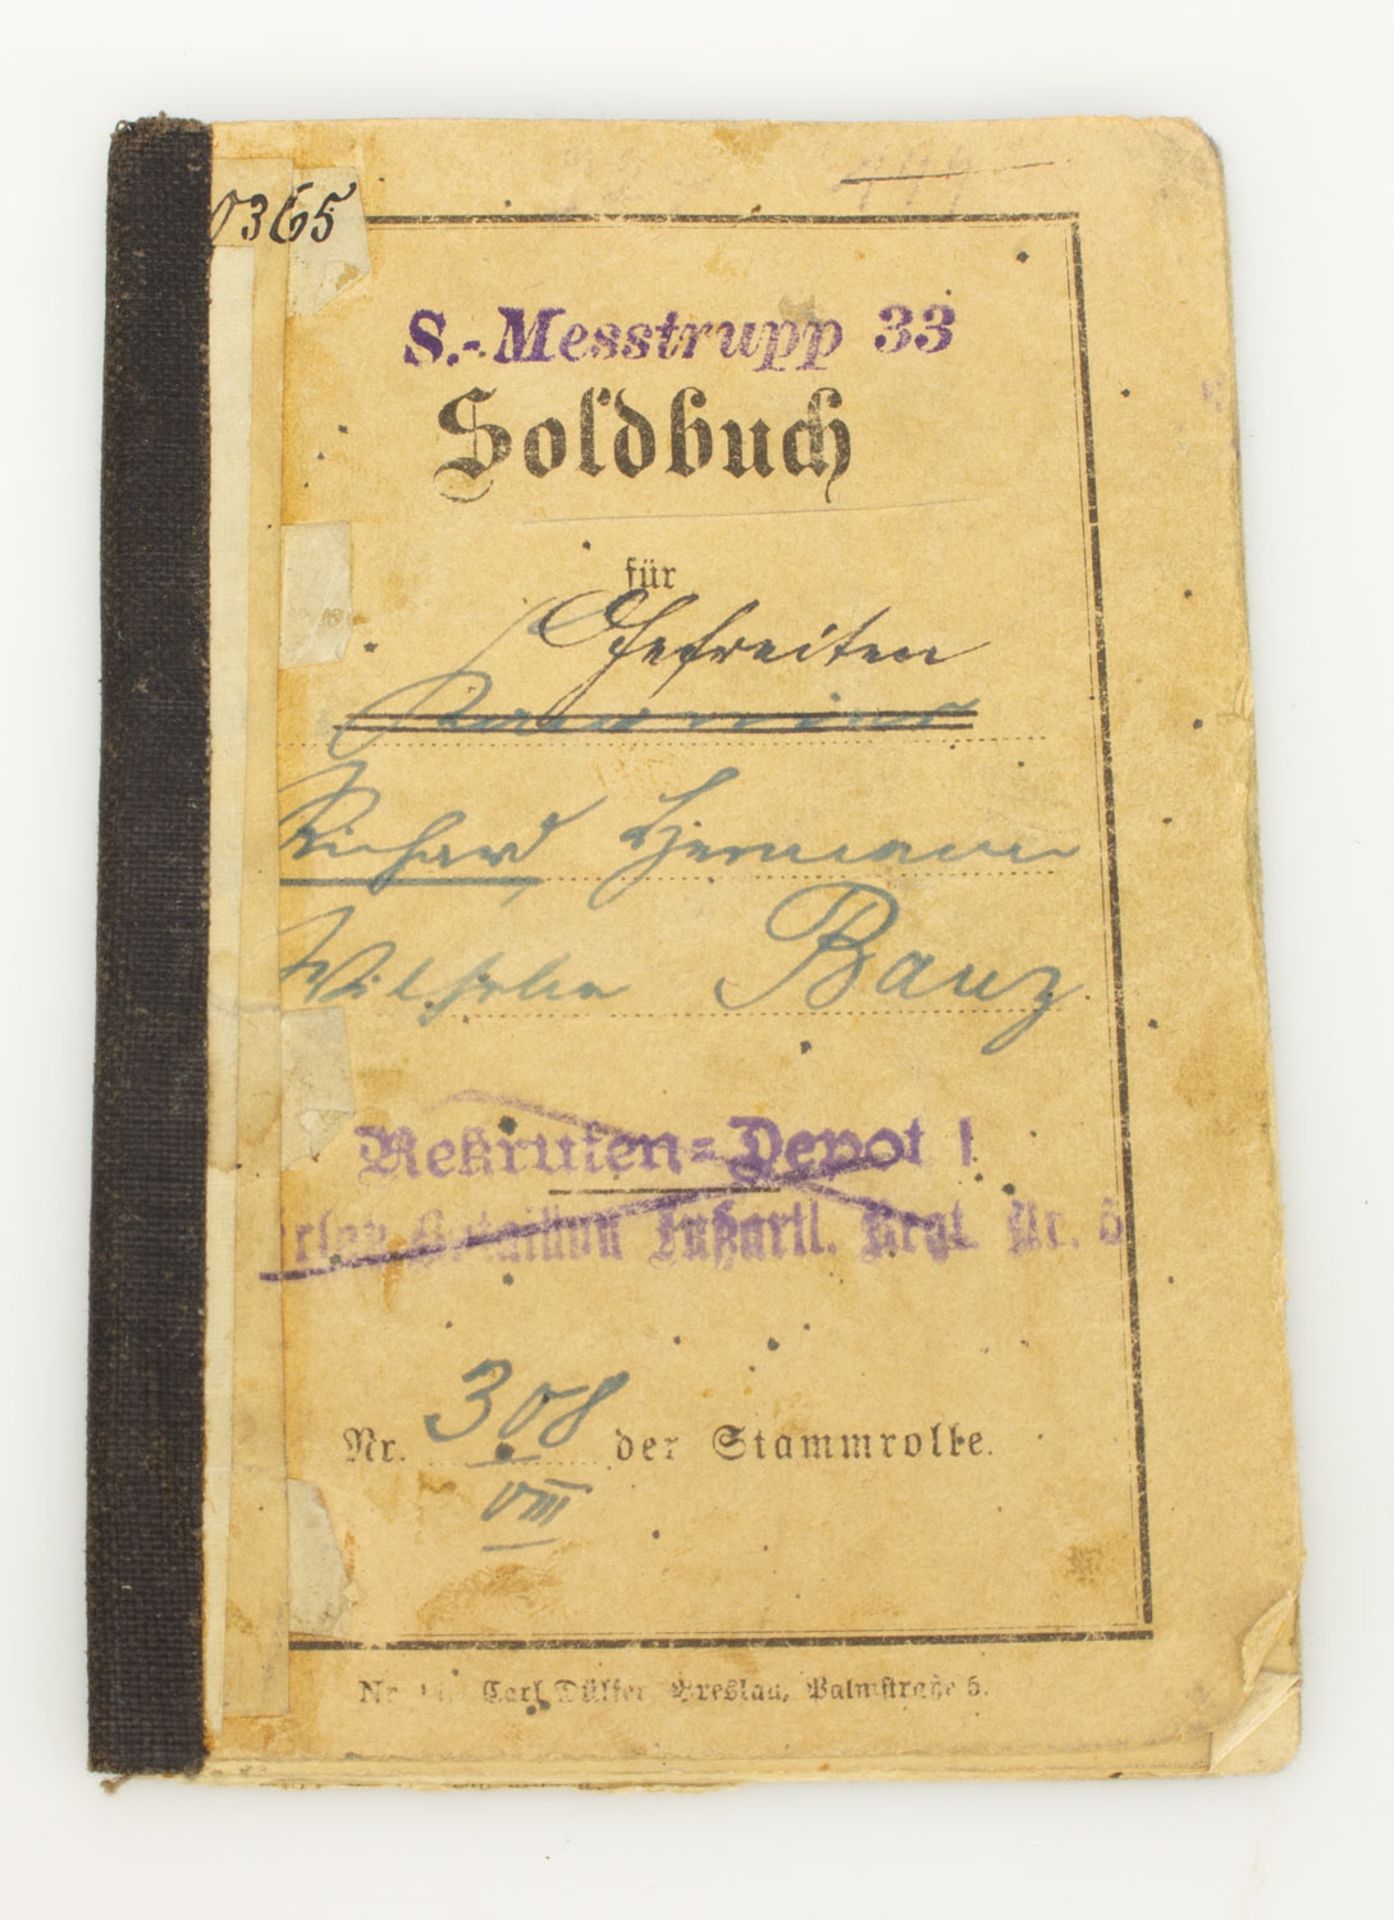 0365
S.-Messtrupp 33
Soldbuch
für
Gefreiten
Kanonier
Richard Hermann
Wilhelm Banz
Rekruten=Depot I
Bataillon Fußartl. Regt. Nr. 6
Nr. 308 der Stammrolle.
VIII
Nr. Carl Dülfer Breslau, Palmstraße 5.